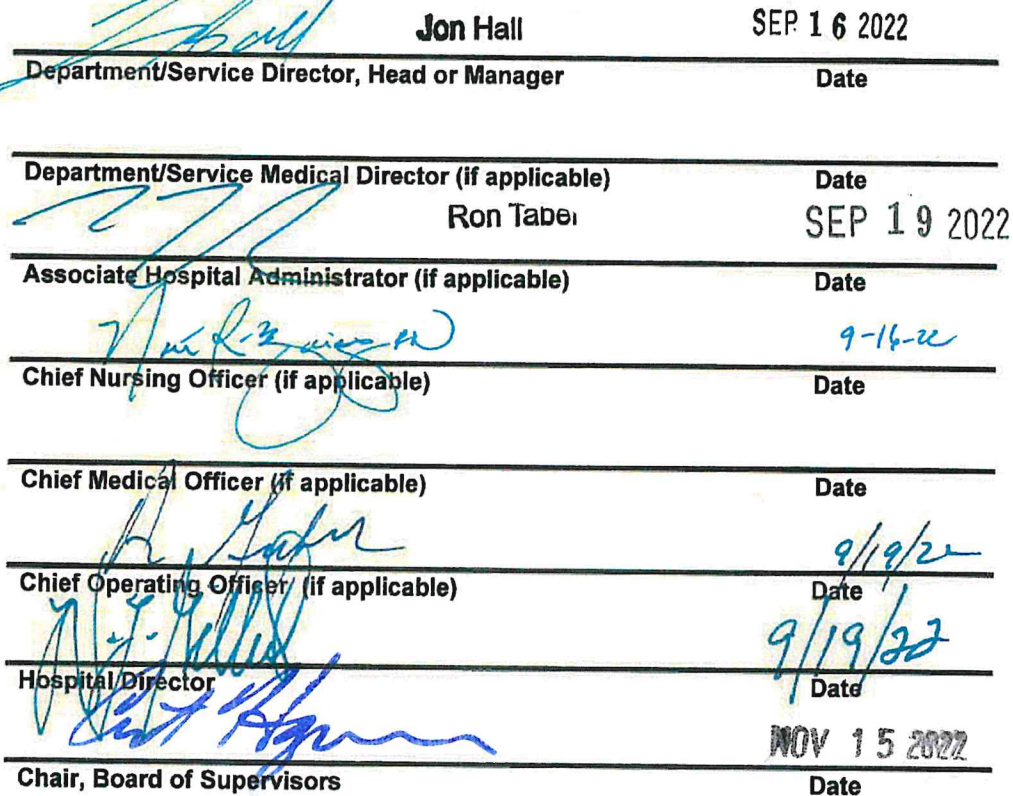 Jon Hall SEP 16 2022
Department/Service Director, Head or Manager Date
Department/Service Medical Director (if applicable) Date
Ron Taber SEP 19 2022
Associate Hospital Administrator (if applicable) Date
9-16-22
Chief Nursing Officer (if applicable) Date
Chief Medical Officer (if applicable) Date
9/19/22
Chief Operating Officer (if applicable) Date
9/19/22
Hospital Director Date
NOV 15 2022
Chair, Board of Supervisors Date